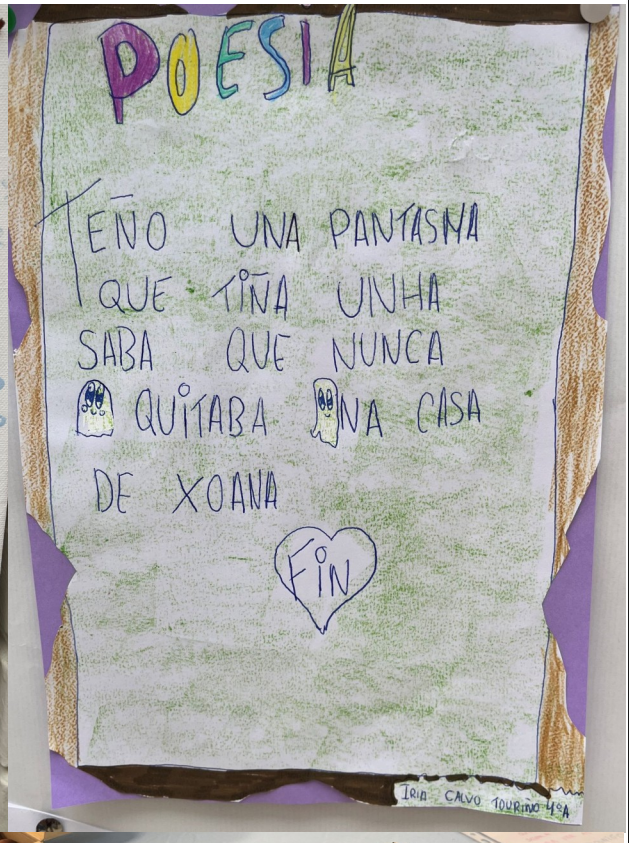 POESIA
TEÑO UNA PANTASMA
QUE TIÑA UNHA
SABA QUE NUNCA
QUITABA NA CASA
DE XOANA
FIN
IRIA CALVO TOURIÑO 4ºA